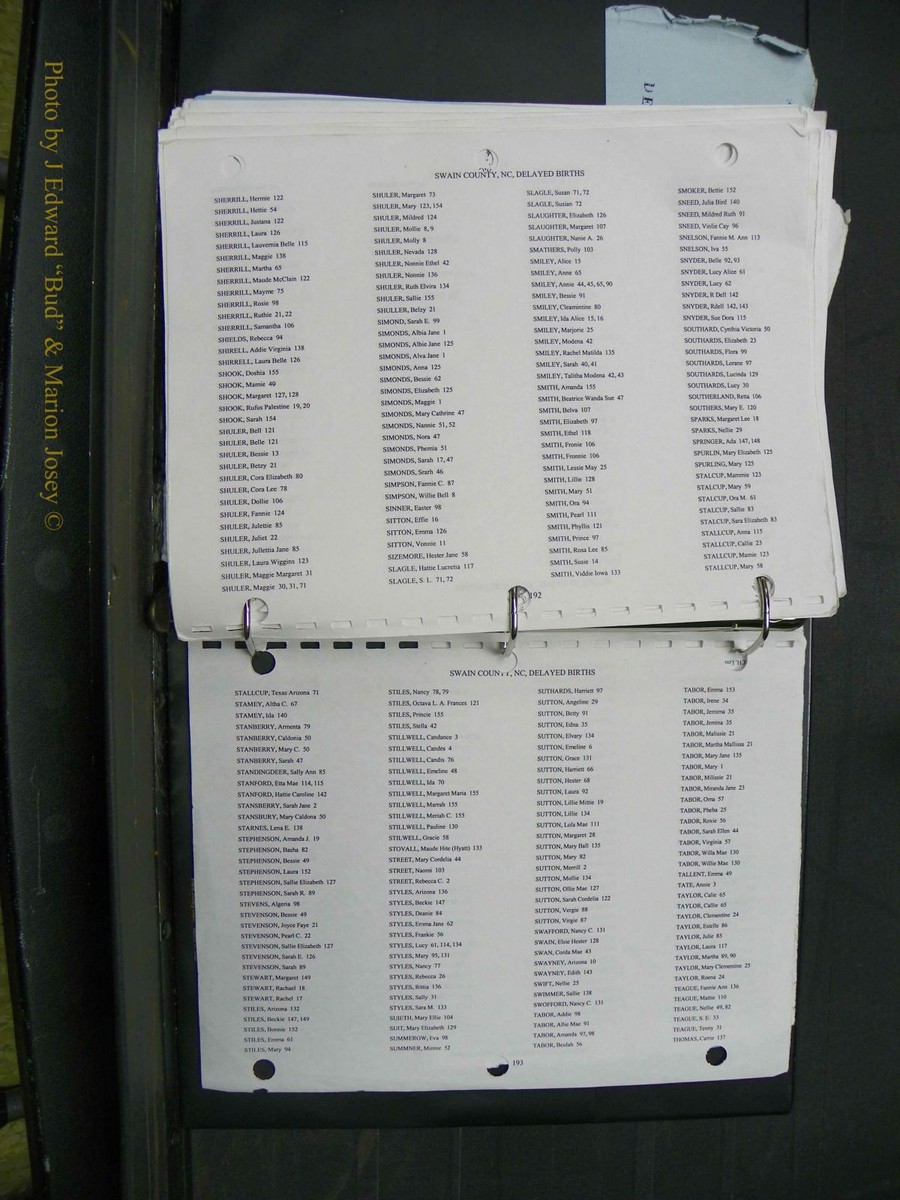 Photo by J Edward "Bud" & Marion Josey ©
SWAIN COUNTY, NC, DELAYED BIRTHS
SHERRILL, Hermie 122
SHERRILL, Hettie 54
SHERRILL, Justana 122
SHERRILL, Laura 126
SHERRILL, Lauvernia Belle 115
SHERRILL, Maggie 138
SHERRILL, Martha 65
SHERRILL, Maude McClain 122
SHERRILL, Mayme 75
SHERRILL, Rosie 98
SHERRILL, Ruthie 21, 22
SHERRILL, Samantha 106
SHIELDS, Rebecca 94
SHIRELL, Addie Virginia 138
SHIRRELL, Laura Belle 126
SHOOK, Doshia 155
SHOOK, Mamie 49
SHOOK, Margaret 127, 128
SHOOK, Rufus Palestine 19, 20
SHOOK, Sarah 154
SHULER, Bell 121
SHULER, Belle 121
SHULER, Bessie 13
SHULER, Betzy 21
SHULER, Cora Elizabeth 80
SHULER, Cora Lee 78
SHULER, Dollie 106
SHULER, Fannie 124
SHULER, Julettie 85
SHULER, Juliet 22
SHULER, Jullettia Jane 85
SHULER, Laura Wiggins 123
SHULER, Maggie Margaret 31
SHULER, Maggie 30, 31, 71
SHULER, Margaret 73
SHULER, Mary 123, 154
SHULER, Mildred 124
SHULER, Mollie 8, 9
SHULER, Molly 8
SHULER, Nevada 128
SHULER, Nonnie Ethel 42
SHULER, Nonnie 136
SHULER, Ruth Elvira 134
SHULER, Sallie 155
SHULLER, Belzy 21
SIMOND, Sarah E. 99
SIMONDS, Albia Jane 1
SIMONDS, Albie Jane 125
SIMONDS, Alva Jane 1
SIMONDS, Anna 125
SIMONDS, Bessie 62
SIMONDS, Elizabeth 125
SIMONDS, Maggie 1
SIMONDS, Mary Cathrine 47
SIMONDS, Nannie 51, 52
SIMONDS, Nora 47
SIMONDS, Phemia 51
SIMONDS, Sarah 17, 47
SIMONDS, Srarh 46
SIMPSON, Fannie C. 87
SIMPSON, Willie Bell 8
SINNER, Easter 98
SITTON, Effie 16
SITTON, Emma 126
SITTON, Vonnie 11
SIZEMORE, Hester Jane 58
SLAGLE, Hattie Lucretia 117
SLAGLE, S. L. 71, 72
SLAGLE, Susan 71, 72
SLAGLE, Susian 72
SLAUGHTER, Elizabeth 126
SLAUGHTER, Margaret 107
SLAUGHTER, Nanie A. 26
SMATHERS, Polly 103
SMILEY, Alice 15
SMILEY, Anne 65
SMILEY, Annie 44, 45, 65, 90
SMILEY, Bessie 91
SMILEY, Cleamintine 80
SMILEY, Ida Alice 15, 16
SMILEY, Marjorie 25
SMILEY, Modena 42
SMILEY, Rachel Matilda 135
SMILEY, Sarah 40, 41
SMILEY, Talitha Modena 42, 43
SMITH, Amanda 155
SMITH, Beatrice Wanda Sue 47
SMITH, Belva 107
SMITH, Elizabeth 97
SMITH, Ethel 118
SMITH, Fronie 106
SMITH, Fronnie 106
SMITH, Lessie May 25
SMITH, Lillie 128
SMITH, Mary 51
SMITH, Ora 94
SMITH, Pearl 111
SMITH, Phyllis 121
SMITH, Prince 97
SMITH, Rosa Lee 85
SMITH, Susie 14
SMITH, Viddie Iowa 133
SMOKER, Bettie 152
SNEED, Julia Bird 140
SNEED, Mildred Ruth 91
SNEED, Vinlie Cay 96
SNELSON, Fannie M. Ann 113
SNELSON, Iva 55
SNYDER, Belle 92, 93
SNYDER, Lucy Alice 61
SNYDER, Lucy 62
SNYDER, R Dell 142
SNYDER, Rdell 142, 143
SNYDER, Sue Dora 115
SOUTHARD, Cynthia Victoria 50
SOUTHARDS, Elizabeth 23
SOUTHARDS, Flora 99
SOUTHARDS, Lorane 97
SOUTHARDS, Lucinda 129
SOUTHARDS, Lucy 30
SOUTHERLAND, Retta 106
SOUTHERS, Mary E. 120
SPARKS, Margaret Lee 18
SPARKS, Nellie 29
SPRINGER, Ada 147, 148
SPURLIN, Mary Elizabeth 125
SPURLING, Mary 125
STALCUP, Mammie 123
STALCUP, Mary 59
STALCUP, Ora M. 61
STALCUP, Sallie 83
STALCUP, Sara Elizabeth 83
STALLCUP, Anna 115
STALLCUP, Callie 23
STALLCUP, Mamie 123
STALLCUP, Mary 58
192
SWAIN COUNTY, NC, DELAYED BIRTHS
STALLCUP, Texas Arizona 71
STAMEY, Altha C. 67
STAMEY, Ida 140
STANBERRY, Armenta 79
STANBERRY, Caldonia 50
STANBERRY, Mary C. 50
STANBERRY, Sarah 47
STANDINGDEER, Sally Ann 85
STANFORD, Etta Mae 114, 115
STANFORD, Hattie Caroline 142
STANSBERRY, Sarah Jane 2
STANSBURY, Mary Caldona 50
STARNES, Lena E. 138
STEPHENSON, Amanda J. 19
STEPHENSON, Basha 82
STEPHENSON, Bessie 49
STEPHENSON, Laura 152
STEPHENSON, Sallie Elizabeth 127
STEPHENSON, Sarah R. 89
STEVENS, Algeria 98
STEVENSON, Bessie 49
STEVENSON, Joyce Faye 21
STEVENSON, Pearl C. 22
STEVENSON, Sallie Elizabeth 127
STEVENSON, Sarah E. 126
STEVENSON, Sarah 89
STEWART, Margaret 149
STEWART, Rachael 18
STEWART, Rachel 17
STILES, Arizona 132
STILES, Beckie 147, 149
STILES, Bonnie 152
STILES, Emma 61
STILES, Mary 94
STILES, Nancy 78, 79
STILES, Octava L. A. Frances 121
STILES, Princie 155
STILES, Stella 42
STILLWELL, Candance 3
STILLWELL, Candes 4
STILLWELL, Candis 76
STILLWELL, Emeline 48
STILLWELL, Ida 70
STILLWELL, Margaret Maria 155
STILLWELL, Marrah 155
STILLWELL, Meriah C. 155
STILLWELL, Pauline 130
STILWELL, Gracie 58
STOVALL, Maude Hite (Hyatt) 133
STREET, Mary Cordelia 44
STREET, Naomi 103
STREET, Rebecca C. 2
STYLES, Arizona 136
STYLES, Beckie 147
STYLES, Deanie 84
STYLES, Emma Jane 62
STYLES, Frankie 56
STYLES, Lucy 61, 114, 134
STYLES, Mary 95, 131
STYLES, Nancy 77
STYLES, Rebecca 26
STYLES, Rittia 136
STYLES, Sally 31
STYLES, Sara M. 133
SUIETH, Mary Ellie 104
SUIT, Mary Elizabeth 129
SUMMEROW, Eva 98
SUMMNER, Minnie 52
SUTHARDS, Harriett 97
SUTTON, Angeline 29
SUTTON, Betty 91
SUTTON, Edna 35
SUTTON, Elvary 134
SUTTON, Emeline 6
SUTTON, Grace 131
SUTTON, Harriett 66
SUTTON, Hester 68
SUTTON, Laura 92
SUTTON, Lillie Mittie 19
SUTTON, Lillie 134
SUTTON, Lola Mae 111
SUTTON, Margaret 28
SUTTON, Mary Ball 135
SUTTON, Mary 82
SUTTON, Merrill 2
SUTTON, Mollie 134
SUTTON, Ollie Mae 127
SUTTON, Sarah Cordelia 122
SUTTON, Vergie 88
SUTTON, Virgie 87
SWAFFORD, Nancy C. 131
SWAIN, Elsie Hester 128
SWAN, Corda Mae 43
SWAYNEY, Arizona 10
SWAYNEY, Edith 143
SWIFT, Nellie 25
SWIMMER, Sallie 138
SWOFFORD, Nancy C. 131
TABOR, Addie 98
TABOR, Allie Mae 91
TABOR, Amanda 97, 98
TABOR, Beulah 56
TABOR, Emma 153
TABOR, Irene 34
TABOR, Jemima 35
TABOR, Jemina 35
TABOR, Malissie 21
TABOR, Martha Mallissa 21
TABOR, Mary Jane 135
TABOR, Mary 1
TABOR, Milissie 21
TABOR, Miranda Jane 23
TABOR, Oma 57
TABOR, Pheba 25
TABOR, Roxie 56
TABOR, Sarah Ellen 44
TABOR, Virginia 57
TABOR, Willa Mae 130
TABOR, Willie Mae 130
TALLENT, Emma 49
TATE, Annie 3
TAYLOR, Calie 65
TAYLOR, Callie 65
TAYLOR, Clementine 24
TAYLOR, Estelle 86
TAYLOR, Julie 85
TAYLOR, Laura 117
TAYLOR, Martha 89, 90
TAYLOR, Mary Clementine 25
TAYLOR, Roena 24
TEAGUE, Fannie Ann 136
TEAGUE, Mattie 110
TEAGUE, Nellie 49, 82
TEAGUE, S. E. 33
TEAGUE, Tenny 31
THOMAS, Carrie 137
193